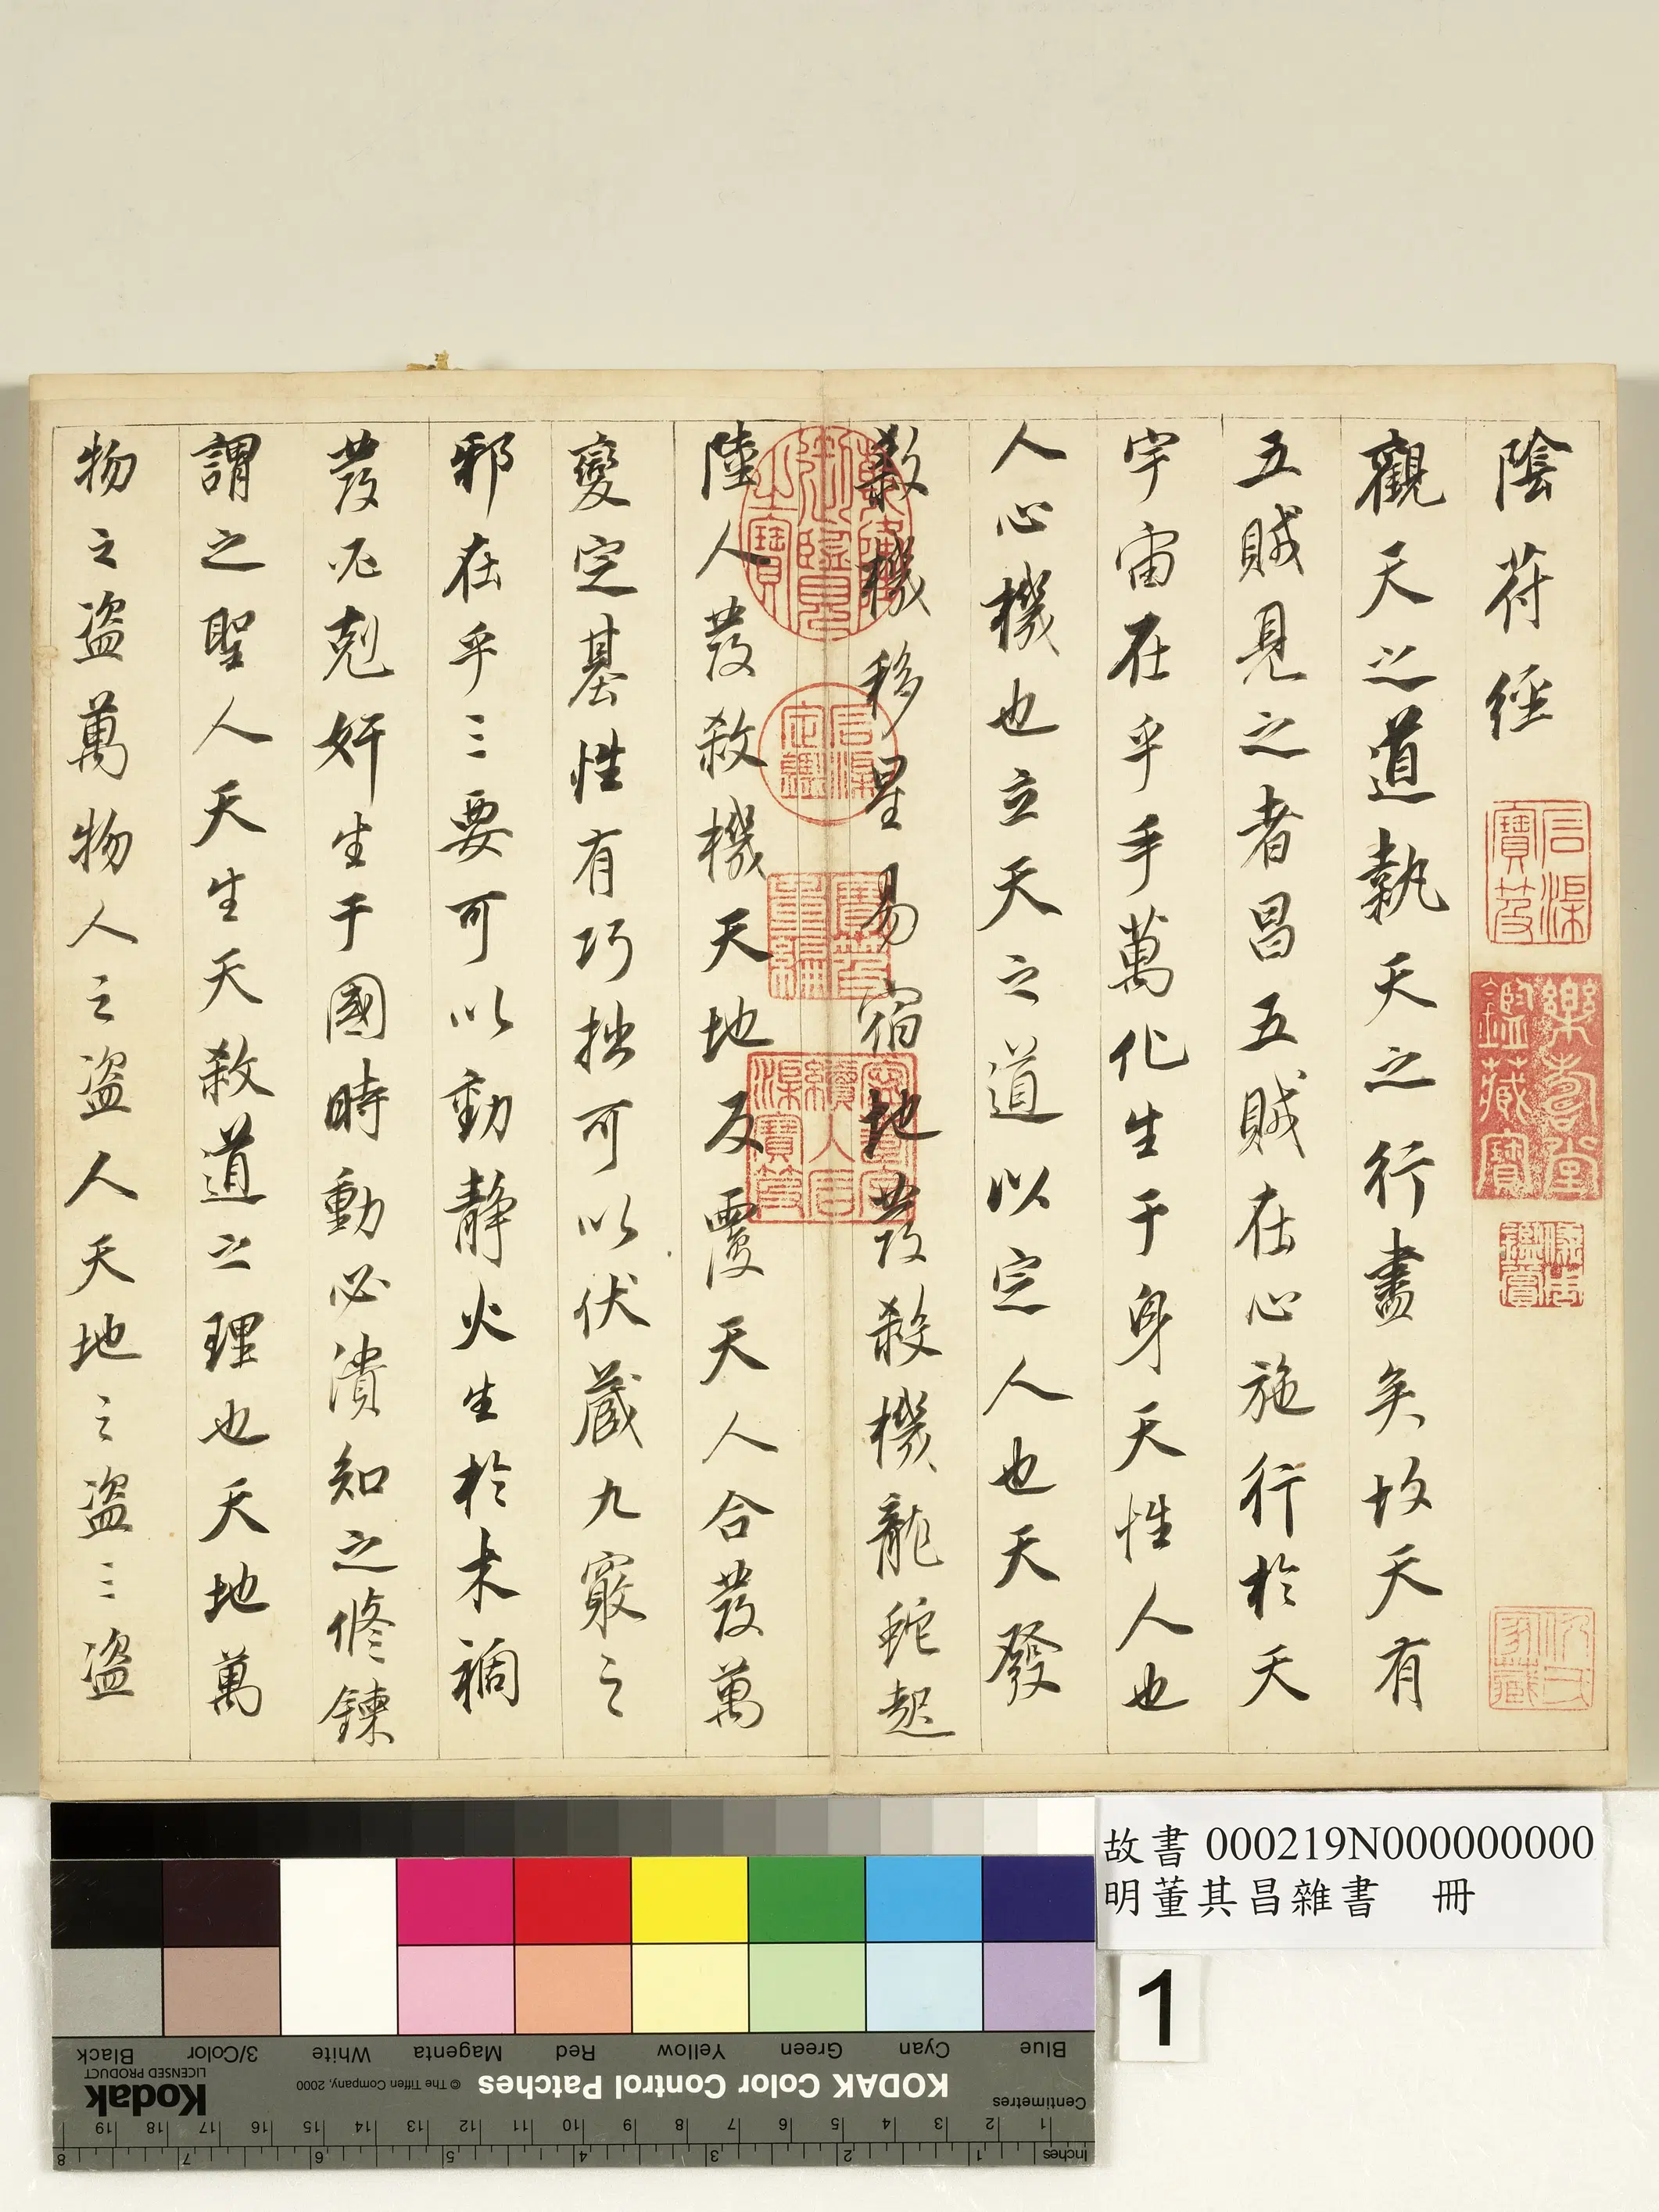 陰符經
觀天之道執天之行盡矣故天有
五賊見之者昌五賊在心施行於天
宇宙在乎手萬化生于身天性人也
人心機也立天之道以定人也天發
殺機移星易宿地發殺機龍蛇起
陸人發殺機天地反覆天人合發萬
變定基性有巧拙可以伏藏九竅之
邪在乎三要可以動靜火生於木禍
發必剋奸生于國時動必潰知之修鍊
謂之聖人天生天殺道之理也天地萬
物之盜萬物人之盜人天地之盜三盜
石渠寶笈
樂壽堂鑑藏寶
乾隆御覽之寶
石渠定鑑
寶笈重編
寧壽宮續入石渠寶笈
故書 000219N000000000
明董其昌雜書 冊
1
Blue Cyan Green Yellow Red Magenta White 3/Color Black
KODAK Color Control Patches © The Tiffen Company, 2000 Kodak
LICENSED PRODUCT
Centimetres 1 2 3 4 5 6 7 8 9 10 11 12 13 14 15 16 17 18 19
Inches 1 2 3 4 5 6 7 8